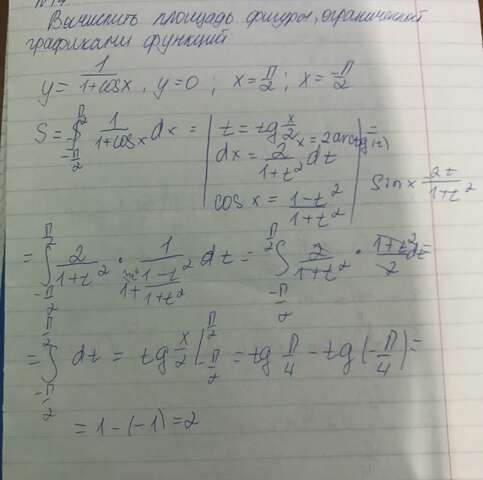 Вычислить площадь фигуры, ограниченной
графиками функций
y = 1/(1+cosx), y=0; x=π/2; x=-π/2
S = ∫_{-π/2}^{π/2} 1/(1+cosx) dx = | t = tg x/2 x = 2arctg(t)
dx = 2/(1+t²) dt
cos x = (1-t²)/(1+t²) | sin x 2t/(1+t²)
= ∫_{-π/2}^{π/2} 2/(1+t²) · 1/(1+(1-t²)/(1+t²)) dt = ∫_{-π/2}^{π/2} 2/(1+t²) · (1+t²)/2 dt =
= ∫_{-π/2}^{π/2} dt = tg x/2 |_{-π/2}^{π/2} = tg π/4 - tg(-π/4) =
= 1-(-1)=2